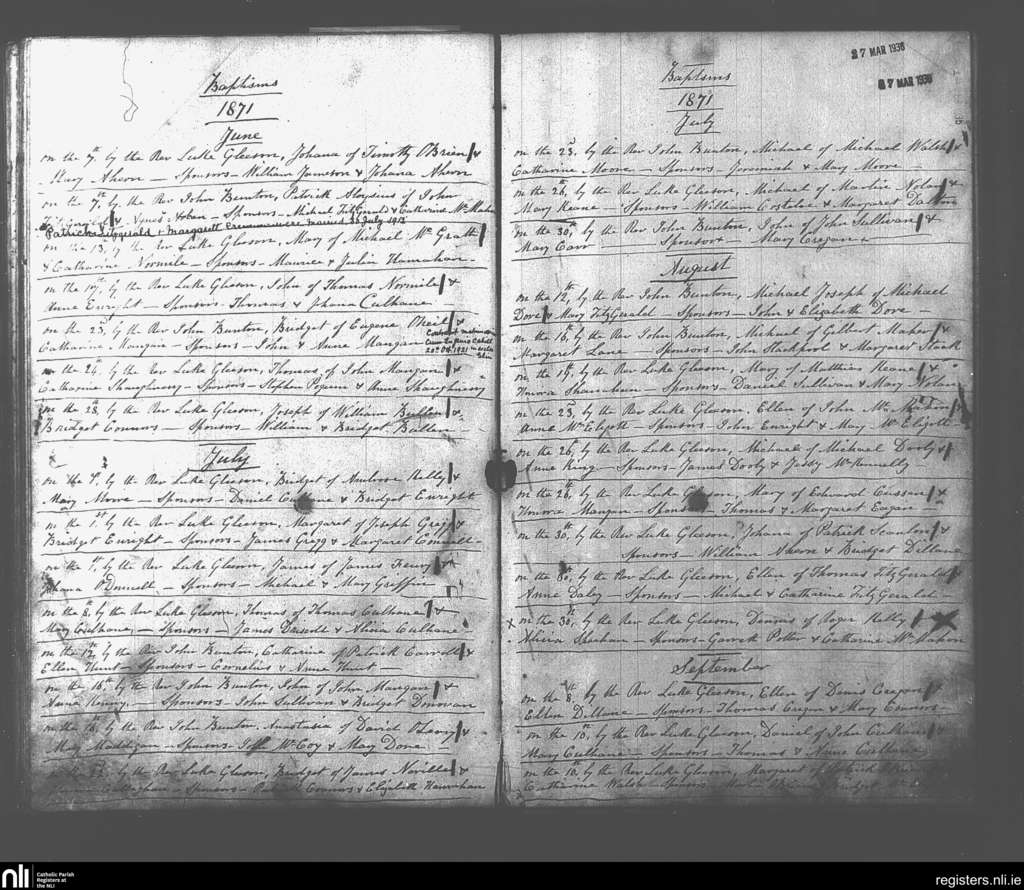 Baptisms
1871
June
on the 7th, by the Rev Luke Gleeson, Johana of Timothy OBrien &
Mary Ahern – Sponsors – William Jameson & Johana Ahern
on the 7th, by the Rev John Bunton, Patrick Aloysius of John
FitzGerald & Agnes – Sponsors – Michael FitzGerald & Catherine Mc Mahon
Patrick Fitzgerald & Margarett were married 30 July 1913
on the 13th, by the Rev Luke Gleeson, Mary of Michael Mc Grath
& Catharine Normile – Sponsors – Maurice & Julia Hanrahan –
on the 19th, by the Rev Luke Gleeson, John of Thomas Normile &
Anne Enright – Sponsors – Thomas & Johana Culhane –
on the 23d, by the Rev John Bunton, Bridget of Eugene ONeil &
Catharine Mangan – Sponsors – John & Anne Mangan
20th Oct. 1921
on the 24th, by the Rev Luke Gleeson, Thomas of John Mangan &
Catharine Shaughnessy – Sponsors – Stephen & Anne Shaughnessy
on the 28th, by the Rev Luke Gleeson, Joseph of William Bullen &
Bridget Connors – Sponsors – William & Bridget Bullen –
July
on the 1st, by the Rev Luke Gleeson, Bridget of Ambrose Kelly &
Mary Moore – Sponsors – Daniel Culhane & Bridget Enright
on the 1st, by the Rev Luke Gleeson, Margaret of Joseph Gregg &
Bridget Enright – Sponsors – James Gregg & Margaret Connell –
on the 1st, by the Rev Luke Gleeson, James of James Henry &
Johana O'Donnell – Sponsors – Michael & Mary Griffin
on the 8th, by the Rev Luke Gleeson, Thomas of Thomas Culhane &
Mary Culhane, – Sponsors – James Driscoll & Alicia Culhane –
on the 12th, by the Rev John Bunton, Catharine of Patrick Carroll &
Ellen Hunt – Sponsors – Cornelius & Anne Hunt –
on the 16th, by the Rev John Bunton, John of John Mangan &
Anne Kenny, – Sponsors – John Sullivan & Bridget Donovan
on the 18th, by the Rev John Bunton, Anastasia of David Ahern &
Mary Maddigan – Sponsors – Mc Coy & Mary Dore –
on the 22d, by the Rev Luke Gleeson, Bridget of James Neville &
Callaghan – Sponsors – Patrick Connors & Elizabeth Hanrahan
27 MAR 1936
27 MAR 1936
Baptisms
1871
July
on the 23d, by the Rev John Bunton, Michael of Michael Walsh &
Catharine Moore – Sponsors – Jeremiah & Mary Moore –
on the 26th, by the Rev Luke Gleeson, Michael of Martin Nolan &
Mary Keane – Sponsors – William Costeloe & Margaret Dalton
on the 30th, by the Rev John Bunton, John of John Sullivan &
Mary Carr – Sponsor – Mary Cregan
August
on the 12th, by the Rev John Bunton, Michael Joseph of Michael
Dore & Mary FitzGerald – Sponsors – John & Elizabeth Dore –
on the 16th, by the Rev John Bunton, Michael of Gilbert Maher &
Margaret Lane – Sponsors – John Stackpool & Margaret Stack
on the 19th, by the Rev Luke Gleeson, Mary of Matthias Keane &
Honora Shanahan – Sponsors – Daniel Sullivan & Mary Nolan
on the 23d, by the Rev Luke Gleeson, Ellen of John Mc Mahon &
Anne Mc Elygott – Sponsors – John Enright & Mary Mc Elygott
on the 26th, by the Rev Luke Gleeson, Michael of Michael Dooly &
Anne King – Sponsors – James Dooly & Mc Kennelly –
on the 26th, by the Rev Luke Gleeson, Mary of Edward Cussen &
Honora Mangan – Sponsors – Thomas & Margaret Eagan –
on the 30th, by the Rev Luke Gleeson, Johana of Patrick Scanlon &
Sponsors – William Ahern & Bridget Dillane
on the 30th, by the Rev Luke Gleeson, Ellen of Thomas FitzGerald &
Anne Daly – Sponsors – Michael & Catharine FitzGerald –
on the 30th, by the Rev Luke Gleeson, Denis of Roger Kelly &
Alicia Sheehan – Sponsors – Garrett Potter & Catharine Mc Mahon
September
on the 8th, by the Rev Luke Gleeson, Ellen of Denis Cregan &
Ellen Dillane – Sponsors – Thomas Cregan & Mary Connors –
on the 10th, by the Rev Luke Gleeson, Daniel of John Culhane &
Mary Culhane – Sponsors – Thomas & Anne Culhane
on the 10th, by the Rev Luke Gleeson, Margaret of Patrick
Catharine Walsh – Sponsors – & Bridget
nli
Catholic Parish
Registers at
the NLI
registers.nli.ie